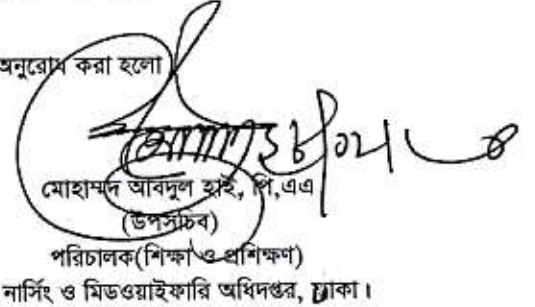 অনুরোধ করা হলো
মোহাম্মদ আবদুল হাই, পি,এএ
(উপসচিব)
পরিচালক(শিক্ষা ও প্রশিক্ষণ)
নার্সিং ও মিডওয়াইফারি অধিদপ্তর, ঢাকা।